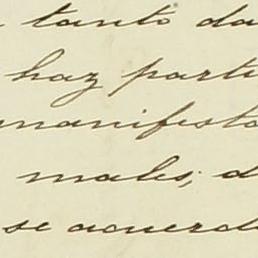 tanto da
haz parti
manifesto
males; d
se acuerd